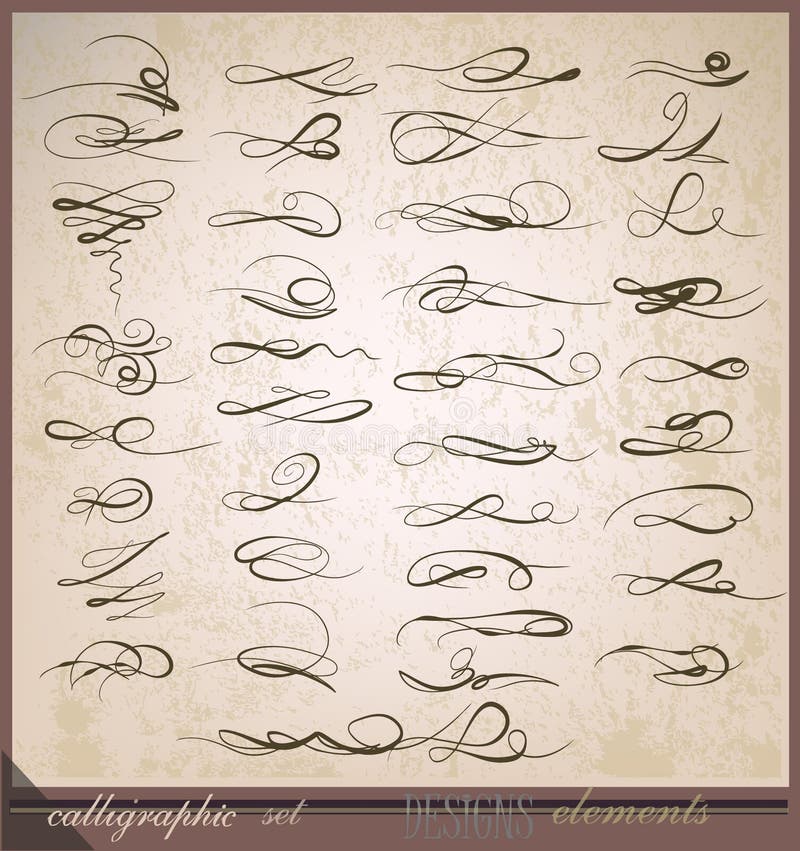 calligraphic set DESIGNS elements